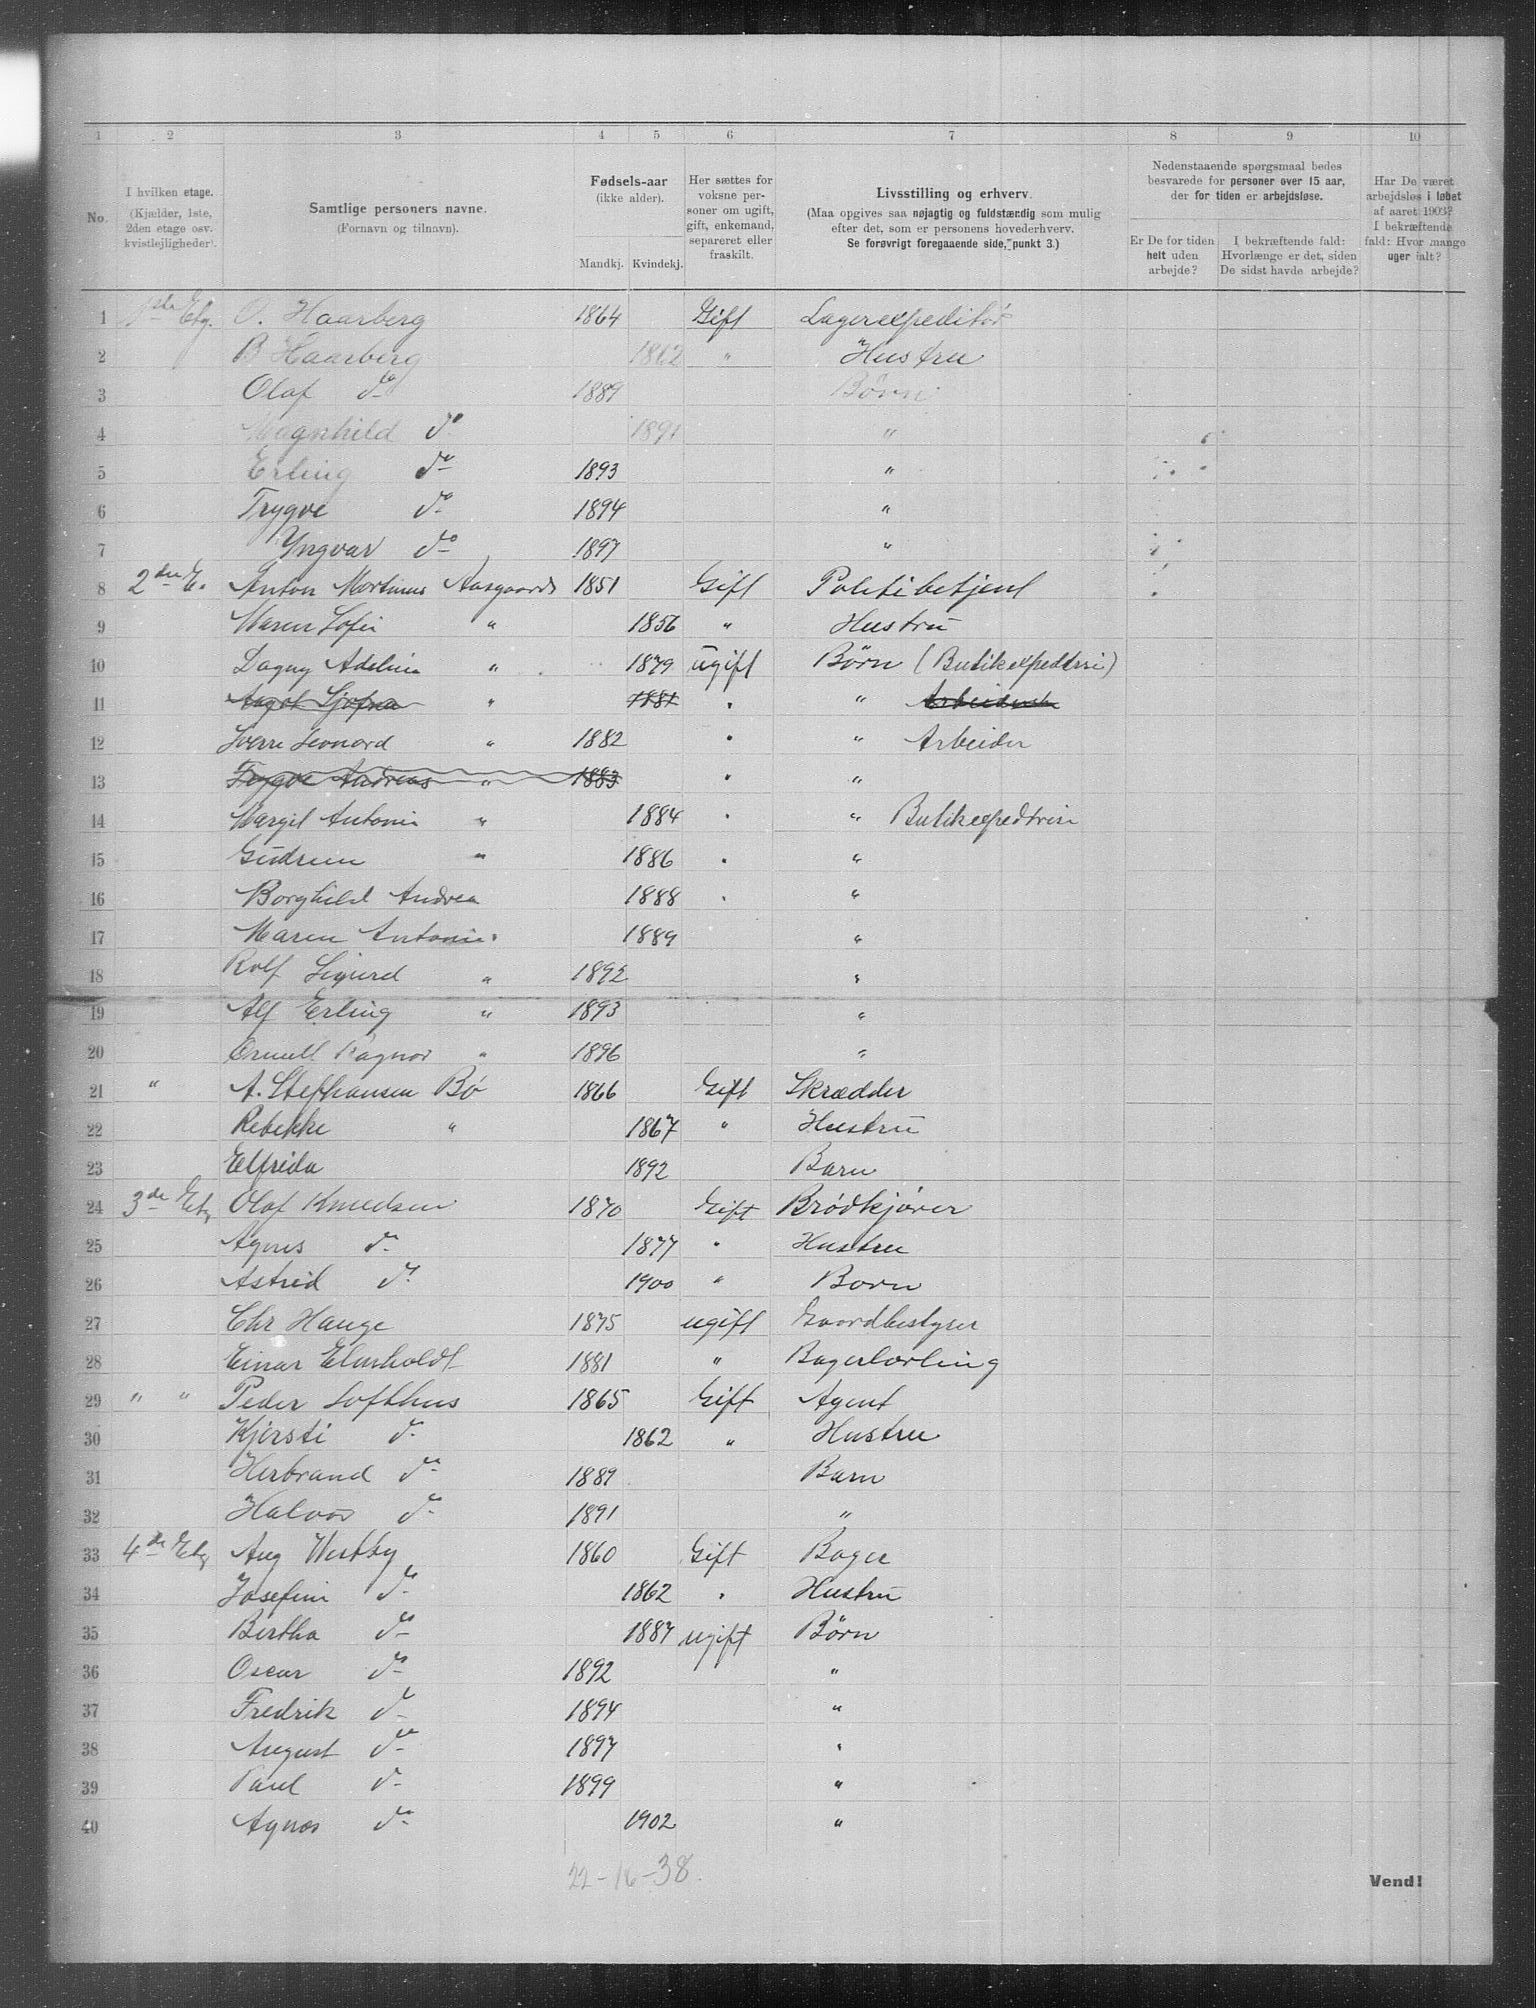 1 2 3 4 5 6 7 8 9 10
No.
I hvilken etage.
(Kjælder, 1ste,
2den etage osv.
kvistlejligheder).
Samtlige personers navne.
(Fornavn og tilnavn).
Fødsels-aar
(ikke alder).
Mandkj. Kvindekj.
Her sættes for
voksne per-
soner om ugift,
gift, enkemand,
separeret eller
fraskilt.
Livsstilling og erhverv.
(Maa opgives saa nøjagtig og fuldstændig som mulig
efter det, som er personens hovederhverv.
Se forøvrigt foregaaende side, punkt 3.)
Nedenstaaende spørgsmaal bedes
besvarede for personer over 15 aar,
der for tiden er arbejdsløse.
Er De for tiden
helt uden
arbejde?
I bekræftende fald:
Hvorlænge er det, siden
De sidst havde arbejde?
Har De været
arbejdsløs i løbet
af aaret 1903?
I bekræftende
fald: Hvor mange
uger ialt?
1 1ste Etg. O. Haarberg 1864 Gift Lagerexpeditør
2 B Haarberg 1862 " Hustru
3 Olaf do 1889 Børn
4 Magnhild do 1891 "
5 Erling do 1893 "
6 Trygve do 1894 "
7 Yngvar do 1897 "
8 2den E. Anton Mortinus Aasgaard 1851 Gift Politibetjent
9 Maren Sofie " 1856 " Hustru
10 Dagny Adeline " 1879 ugift Børn (Butikexpedtrise)
11 Aagot Sjofna " 1881 " "
12 Sverre Leonard " 1882 " " Arbeider
13 Trygve Andreas " 1883 " "
14 Margit Antonie " 1884 " " Butikexpedtrise
15 Gudrun " 1886 " "
16 Borghild Andrea 1888 " "
17 Maren Antonie " 1889 "
18 Rolf Sigurd " 1892 "
19 Alf Erling " 1893 "
20 Ragnar " 1896 "
21 " A. Steffhansen Bø 1866 Gift Skrædder
22 Rebekke " 1867 " Hustru
23 Elfrida 1892 Barn
24 3de Etg Olaf Knudsen 1870 Gift Brødkjører
25 Agnes do 1877 " Hustru
26 Astrid do 1900 " Born
27 Chr Hauge 1875 ugift Gaardbestyrer
28 Einar Elmholdt 1881 " Bagerlærling
29 " " Peder Lofthus 1865 Gift Agent
30 Kjersti do 1862 " Hustru
31 Herbrand do 1889 Barn
32 Halvor do 1891 "
33 4de Etg Aug Westby 1860 Gift Bager
34 Josefine do 1862 " Hustru
35 Bertha do 1887 ugift Børn
36 Oscar do 1892 "
37 Fredrik do 1894 "
38 August do 1897 "
39 Paul do 1899 "
40 Agnes do 1902 "
22-16-38.
Vend!